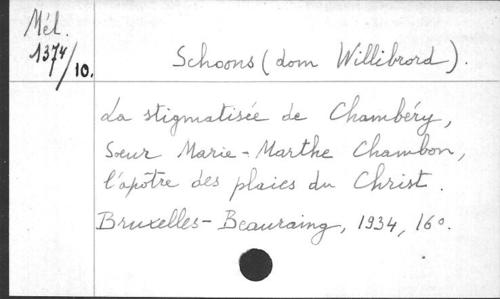 Mél.
1374/10.
Schoons (dom Willibrord).
La stigmatisée de Chambéry,
Sœur Marie-Marthe Chambon,
l'apôtre des plaies du Christ.
Bruxelles-Beauraing, 1934, 16o.